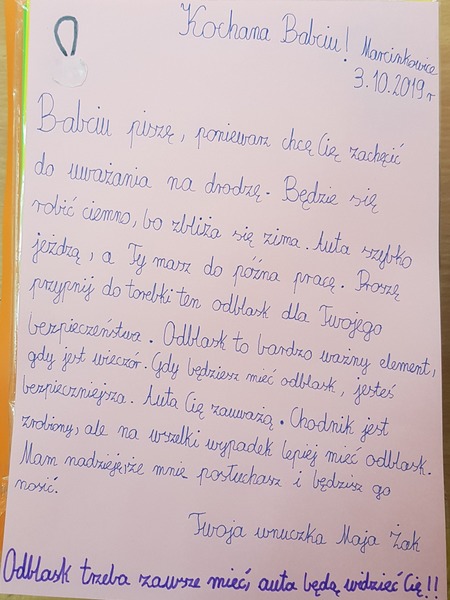 Kochana Babciu! Marcinkowice
3.10.2019r
Babciu piszę, poniewarz chcę Cię zachęcić
do uważania na drodzę. Będzie się
robić ciemno, bo zbliża się zima. Auta szybko
jeżdżą, a Ty masz do późna pracę. Proszę
przypnij do torebki ten odblask dla Twojego
bezpieczeństwa. Odblask to bardzo ważny element,
gdy jest wieczór. Gdy będziesz mieć odblask, jesteś
bezpieczniejsza. Auta Cię zauważą. Chodnik jest
zrobiony, ale na wszelki wypadek lepiej mieć odblask.
Mam nadzieję,że mnie posłuchasz i będzisz go
nosić.
Twoja wnuczka Maja Żak
Odblask trzeba zawsze mieć, auta będą widzieć Cię!!